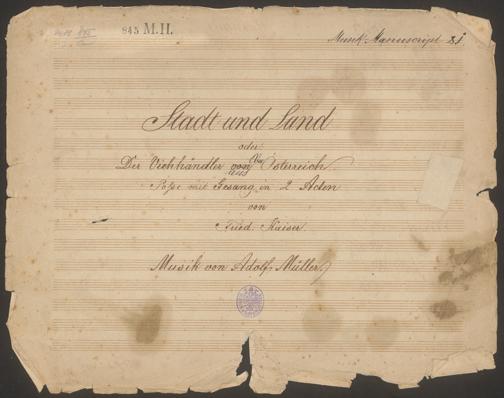 845 M.H.
Musik-Manuscript 81
Stadt und Land
oder
Der Viehhändler von Ober Österreich
aus
Posse mit Gesang in 2 Acten
von
Fried. Kaiser.
Musik von Adolf Müller